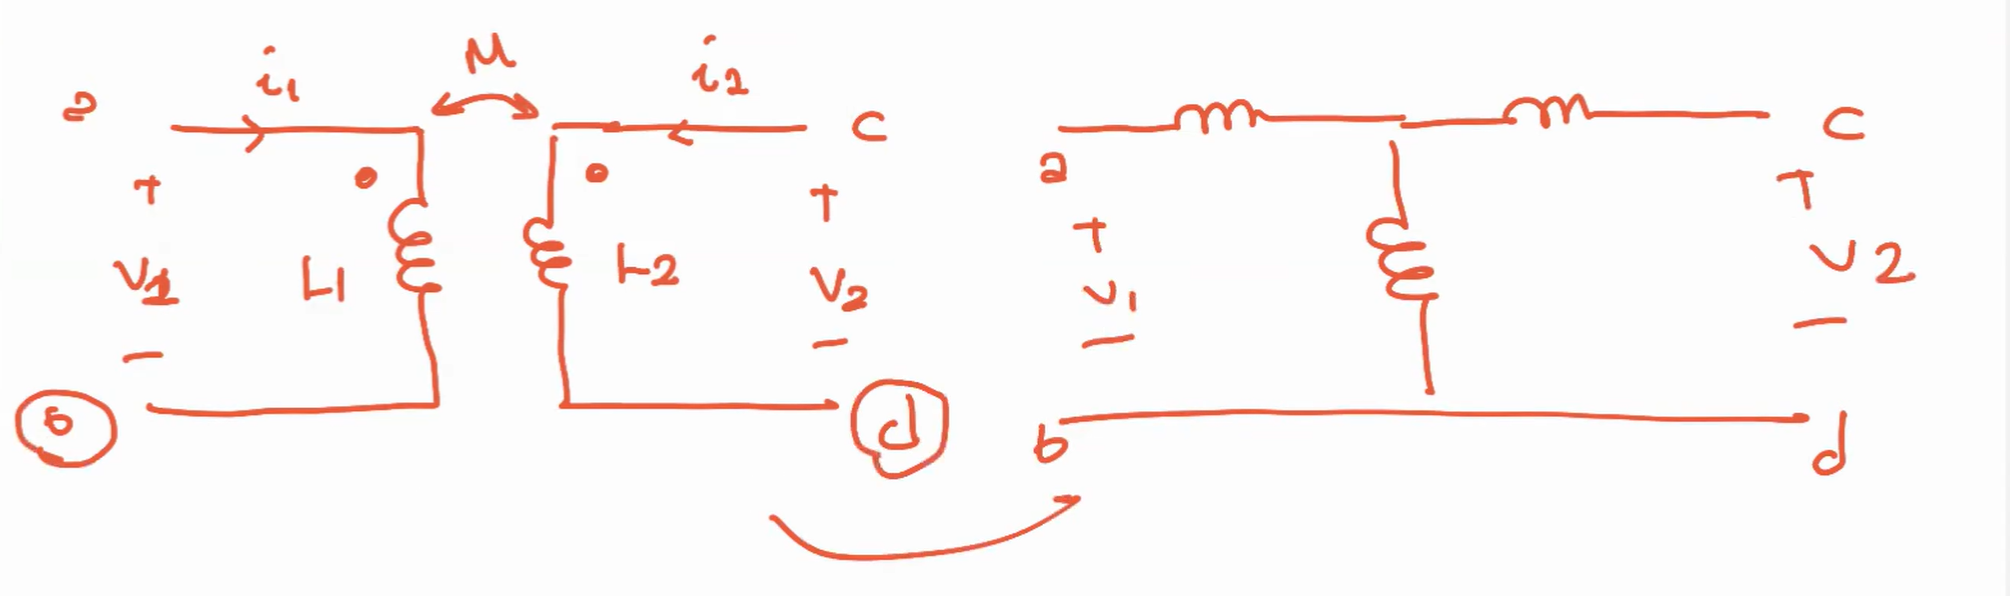 M
i1
i2
a
c
+
V1
-
L1
L2
+
V2
-
b
d
a
c
+
V1
-
+
V2
-
b
d